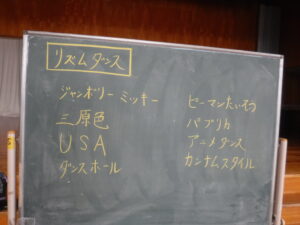 リズムダンス
ジャンボリーミッキー
三原色
USA
ダンスホール
ピーマンたいそう
パプリカ
アニメダンス
カンナムスタイル